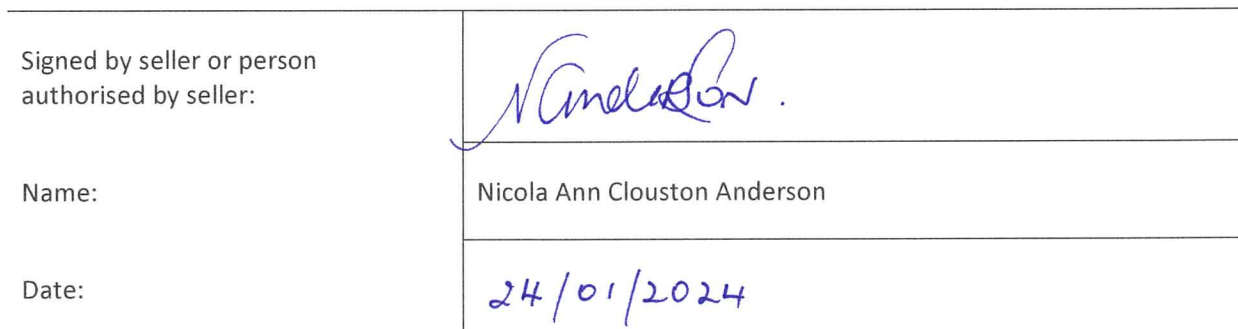 Signed by seller or person
authorised by seller:
NAnderson.
Name:
Nicola Ann Clouston Anderson
Date:
24/01/2024